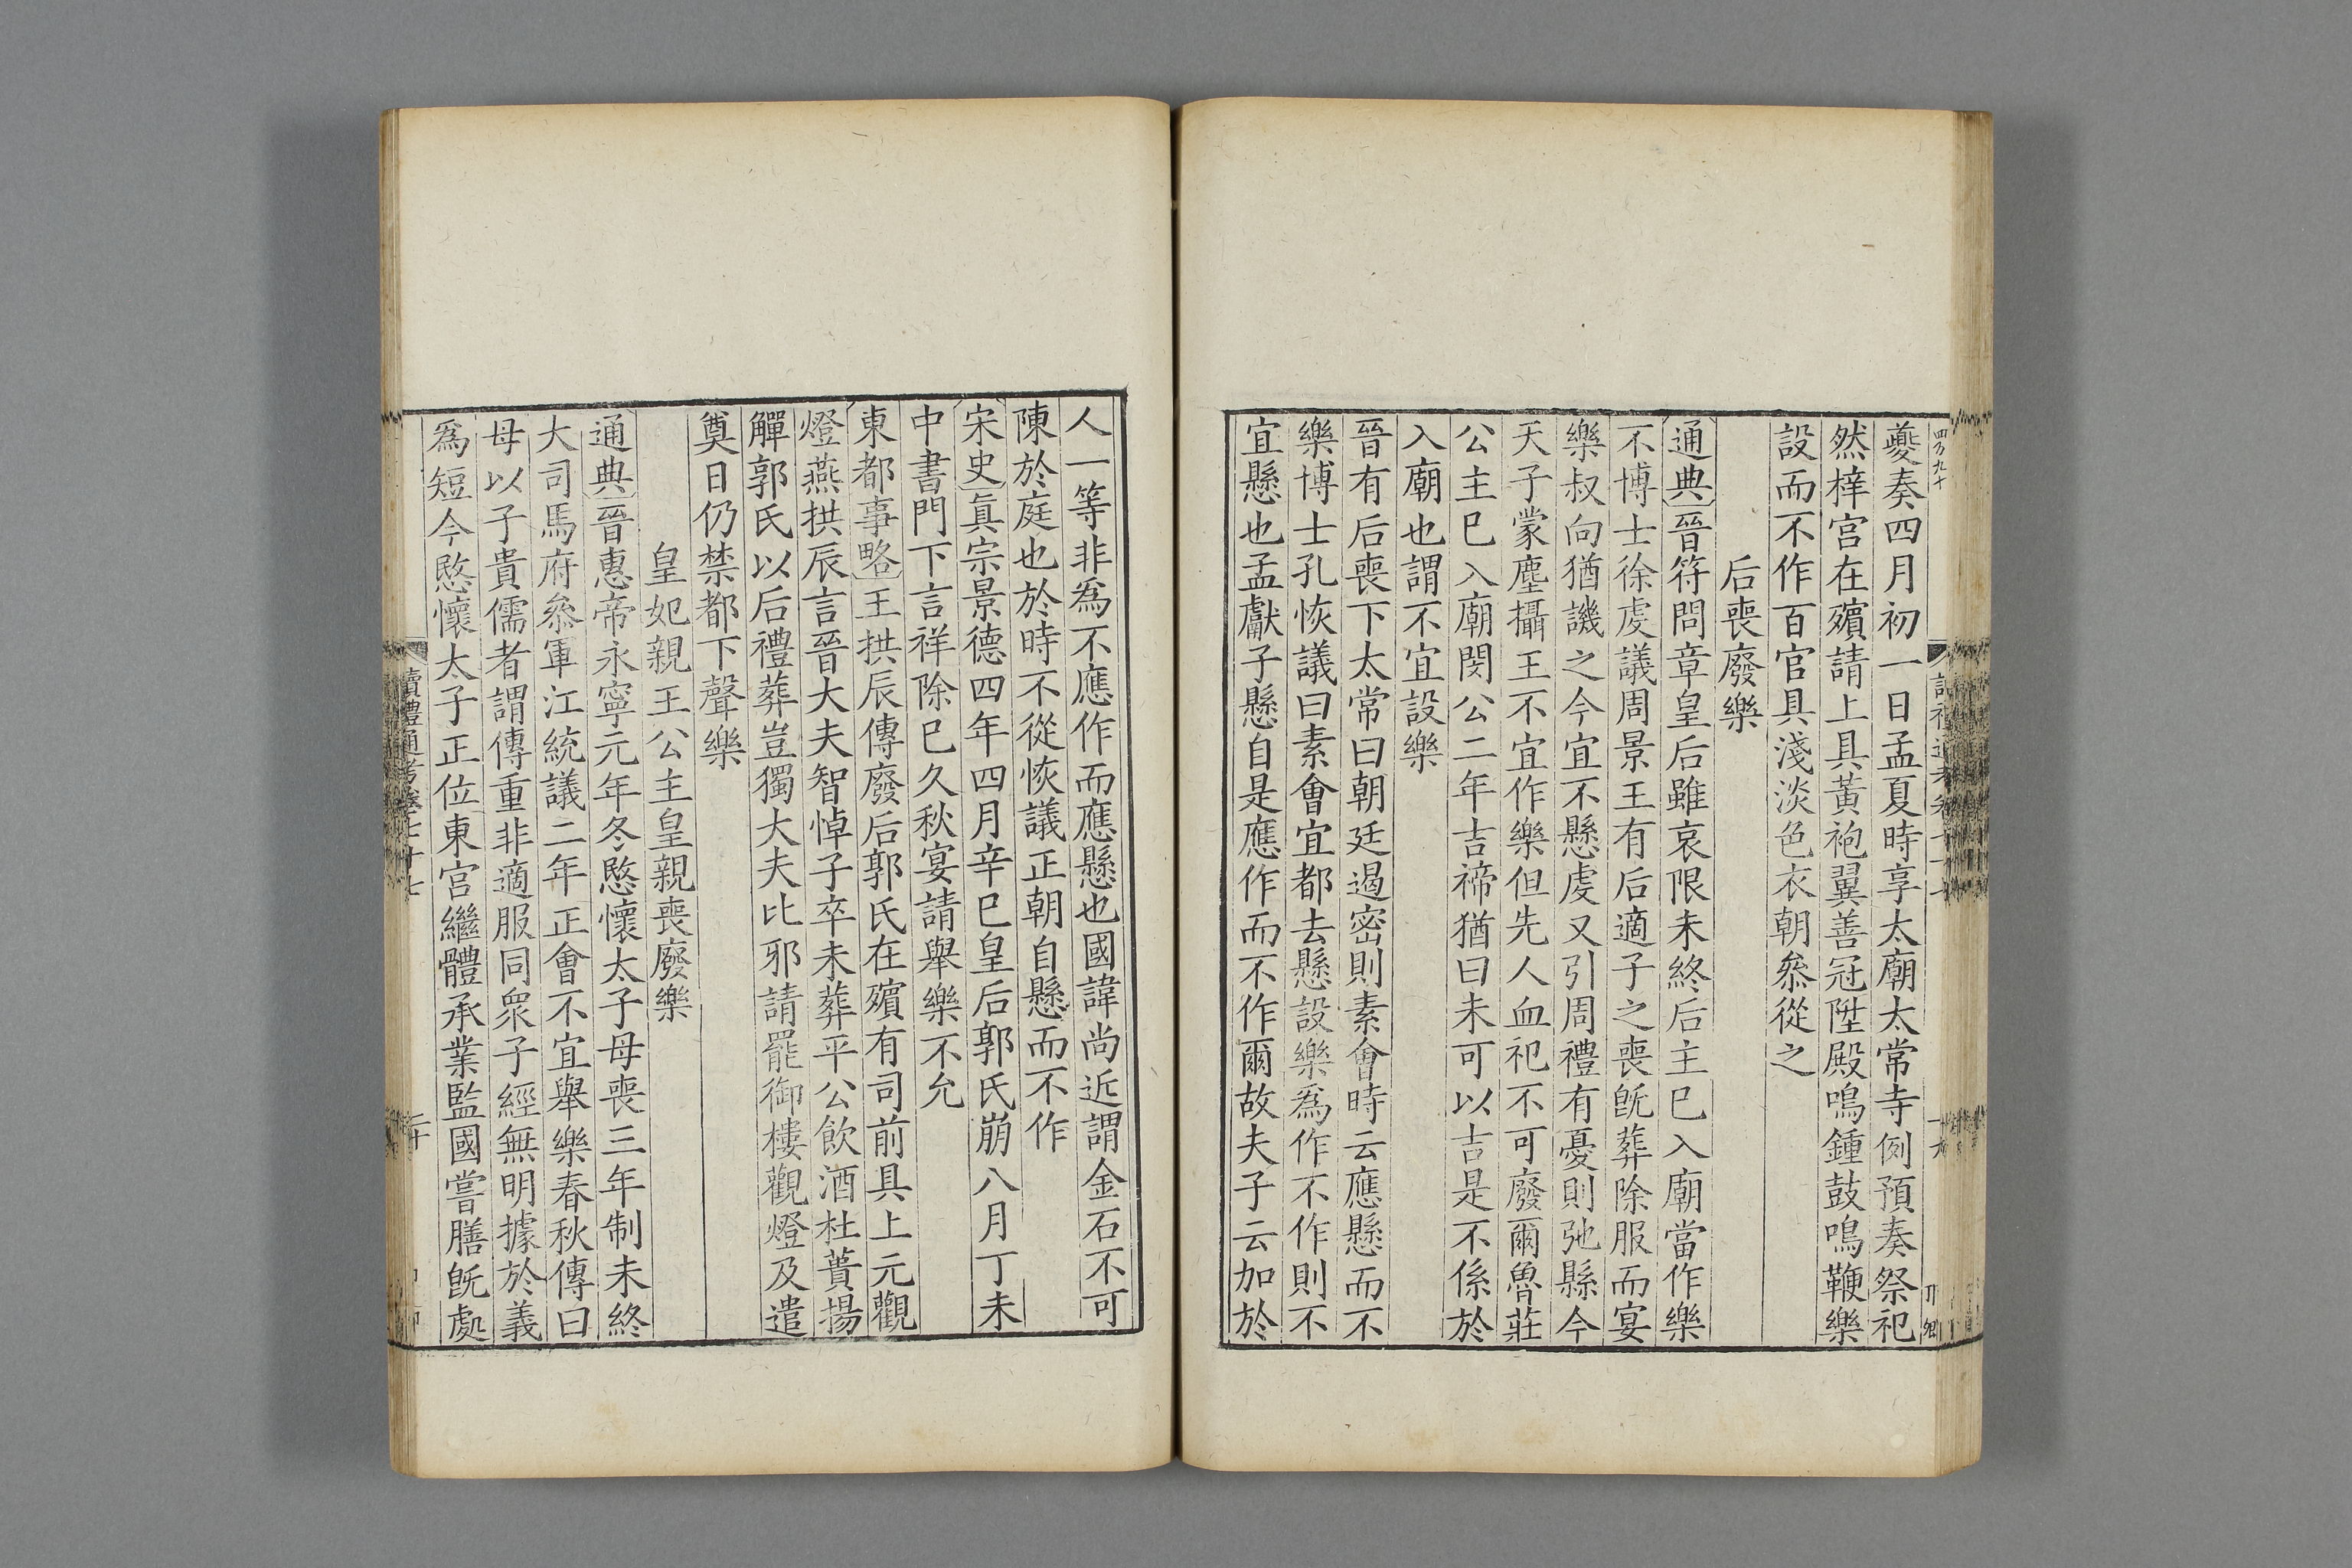 夔奏四月初一日孟夏時享太廟太常寺例預奏祭祀
然梓宮在殯請上具黃袍翼善冠陞殿鳴鍾鼓鳴鞭樂
設而不作百官具淺淡色衣朝叅從之
后喪廢樂
通典晉符問章皇后雖哀限未終后主已入廟當作樂
不博士徐虔議周景王有后適子之喪旣葬除服而宴
樂叔向猶譏之今宜不懸虔又引周禮有憂則弛縣今
天子蒙塵攝王不宜作樂但先人血祀不可廢爾魯莊
公主已入廟閔公二年吉禘猶曰未可以吉是不係於
入廟也謂不宜設樂
晉有后喪下太常曰朝廷遏密則素會時云應懸而不
樂博士孔恢議曰素會宜都去懸設樂為作不作則不
宜懸也孟獻子懸自是應作而不作爾故夫子云加於
人一等非為不應作而應懸也國諱尚近謂金石不可
陳於庭也於時不從恢議正朝自懸而不作
宋史真宗景德四年四月辛巳皇后郭氏崩八月丁未
中書門下言祥除已久秋宴請舉樂不允
東都事略王拱辰傳廢后郭氏在殯有司前具上元觀
燈燕拱辰言晉大夫智悼子卒未葬平公飲酒杜蕢揚
觶郭氏以后禮葬豈獨大夫比邪請罷御樓觀燈及遣
奠日仍禁都下聲樂
皇妃親王公主皇親喪廢樂
通典晉惠帝永寧元年冬愍懷太子母喪三年制未終
大司馬府叅軍江統議二年正會不宜舉樂春秋傳曰
母以子貴儒者謂傳重非適服同眾子經無明據於義
為短今愍懷太子正位東宮繼體承業監國嘗膳旣處
讀禮通考卷七十七
二十